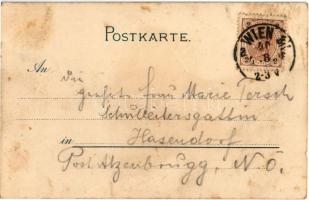 POSTKARTE.
WIEN
2-3
An die
geehrte Frau Marie Tersch
Schulleitersgattin
in Hasendorf
Post Atzenbrugg, N.Ö.